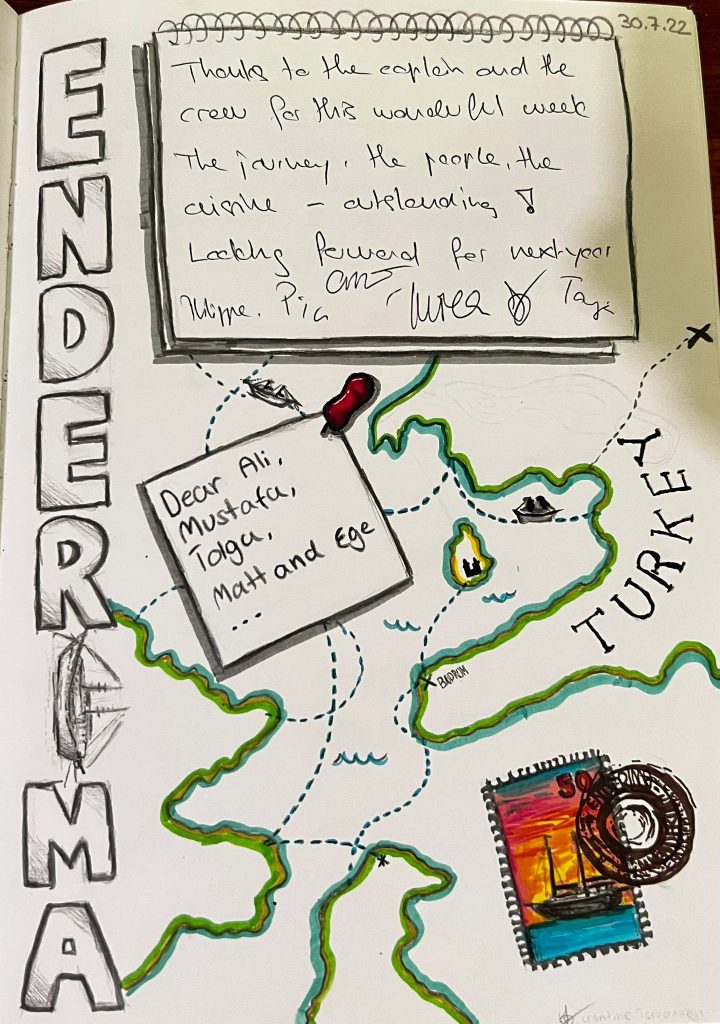 30.7.22
Thanks to the captain and the
crew for this wonderful week
The journey, the people, the
cuisine – outstanding !
Looking forward for next year
Pia
ENDER MA
Dear Ali,
Mustafa,
Tolga,
Matt and Ege
...
TURKEY
BODRUM
50